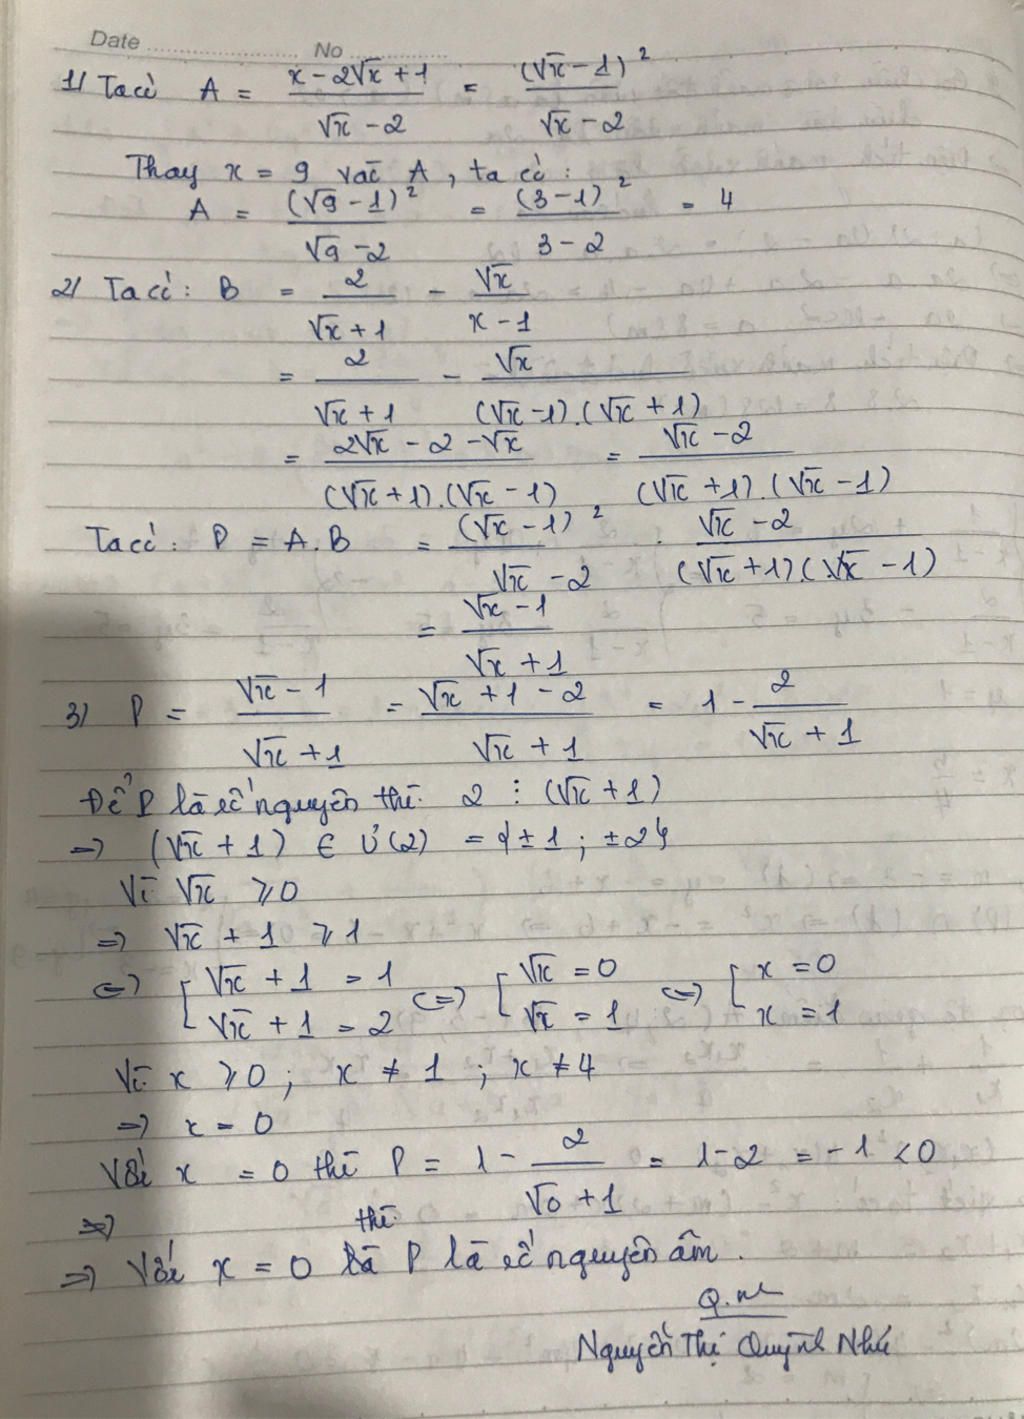 Date ............ No ............
1/ Ta có A = (x - 2√x + 1)/(√x - 2) = (√x - 1)²/(√x - 2)
Thay x = 9 vào A, ta có:
A = (√9 - 1)²/(√9 - 2) = (3 - 1)²/(3 - 2) = 4
2/ Ta có: B = 2/(√x + 1) - √x/(x - 1)
= 2/(√x + 1) - √x/((√x - 1).(√x + 1))
= (2√x - 2 - √x)/((√x + 1).(√x - 1)) = (√x - 2)/((√x + 1).(√x - 1))
Ta có: P = A.B = (√x - 1)²/(√x - 2) . (√x - 2)/((√x + 1).(√x - 1))
= (√x - 1)/(√x + 1)
3) P = (√x - 1)/(√x + 1) = (√x + 1 - 2)/(√x + 1) = 1 - 2/(√x + 1)
Để P là số nguyên thì 2 ⋮ (√x + 1)
=> (√x + 1) ∈ Ư(2) = {±1; ±2}
Vì √x ⩾ 0
=> √x + 1 ⩾ 1
<=> [√x + 1 = 1 <=> [√x = 0 <=> [x = 0
√x + 1 = 2 √x = 1 x = 1
Vì x ⩾ 0; x ≠ 1; x ≠ 4
=> x = 0
Với x = 0 thì P = 1 - 2/(√0 + 1) = 1 - 2 = -1 < 0
=> Với x = 0 thì P là số nguyên âm.
Nguyễn Thị Quỳnh Như